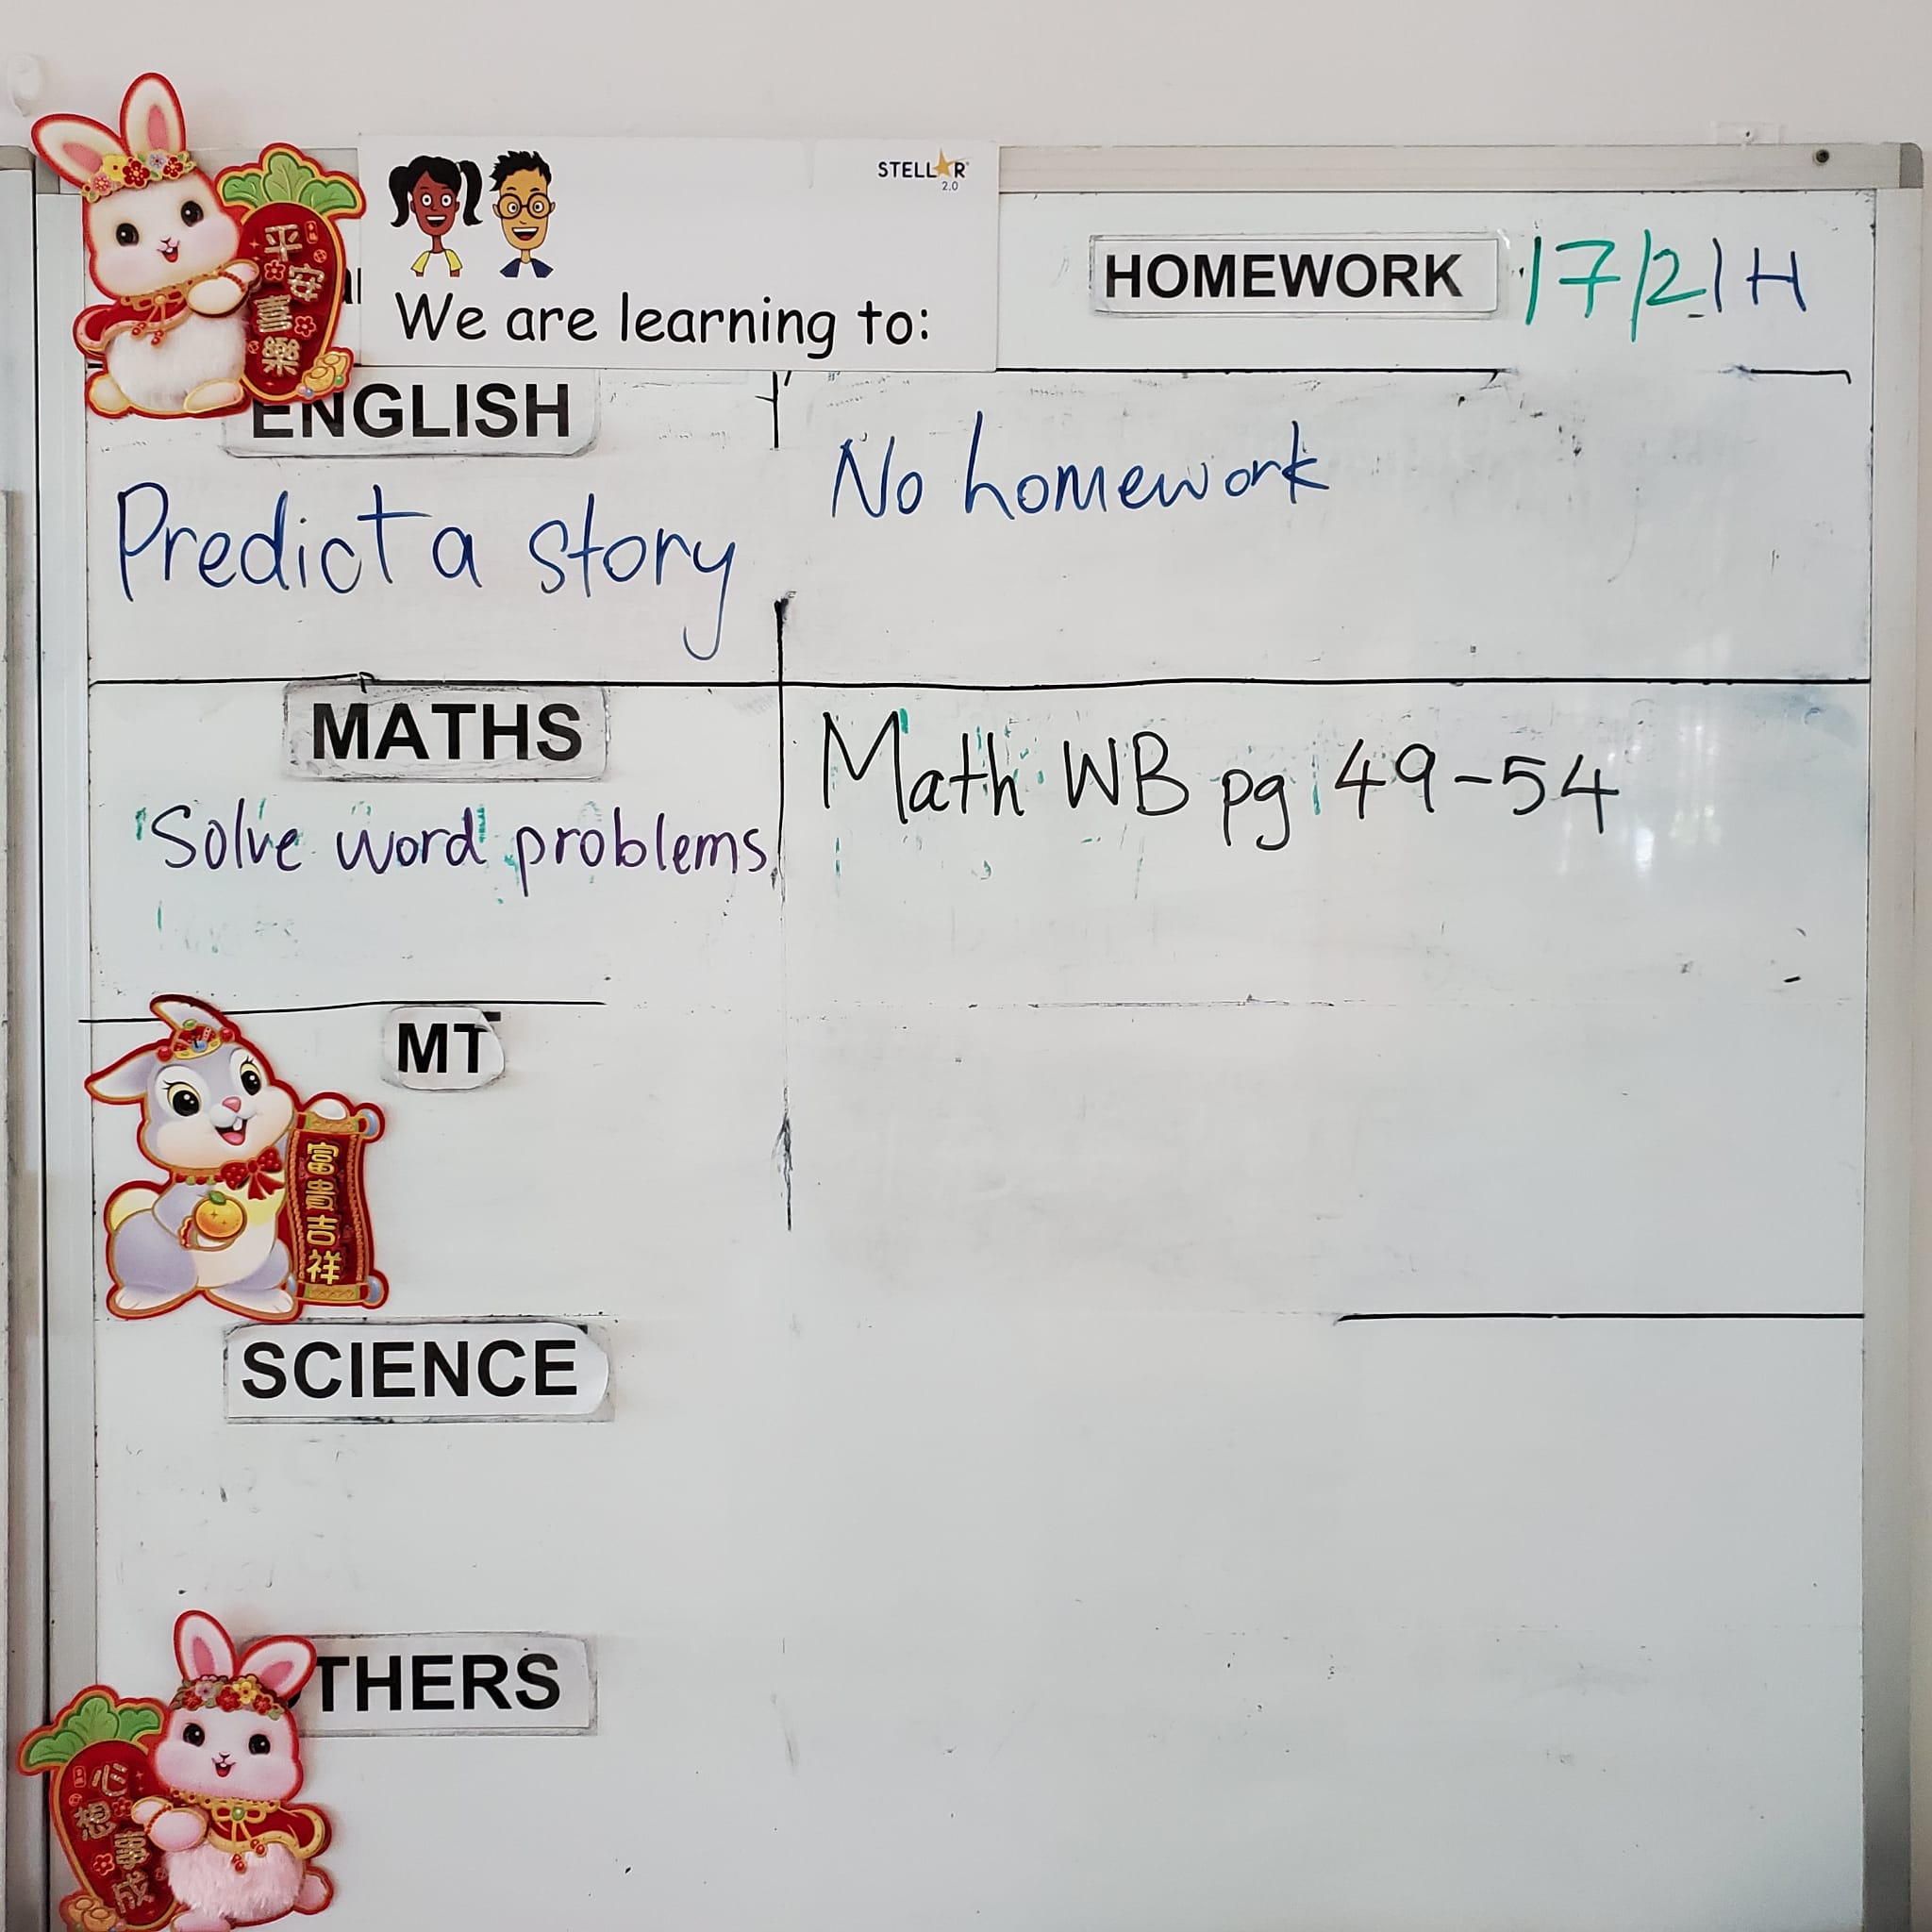 平安喜樂
STELLAR
2.0
We are learning to:
HOMEWORK 17/2 1H
ENGLISH
Predict a story
No homework
MATHS
Solve word problems
Math WB pg 49-54
MT
富貴吉祥
SCIENCE
THERS
心想事成